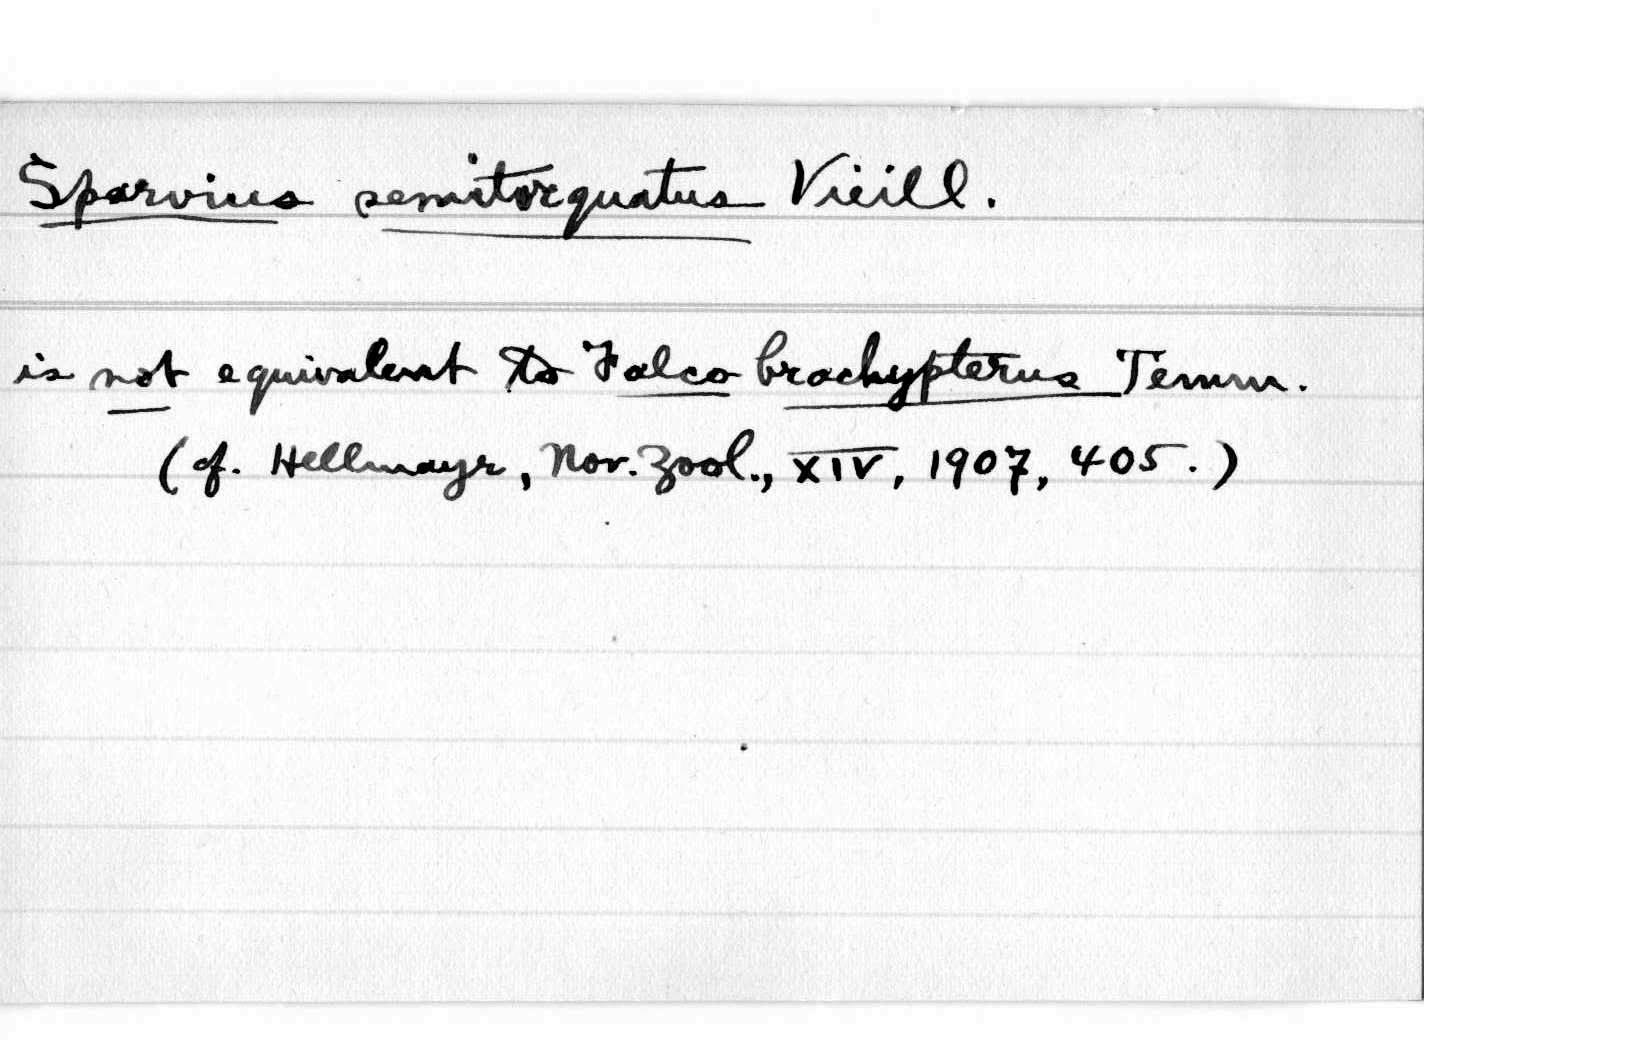 Sparvius semitorquatus Vieill.
is not equivalent to Falco brachypterus Temm.
(cf. Hellmayr, Nov. Zool., XIV, 1907, 405.)